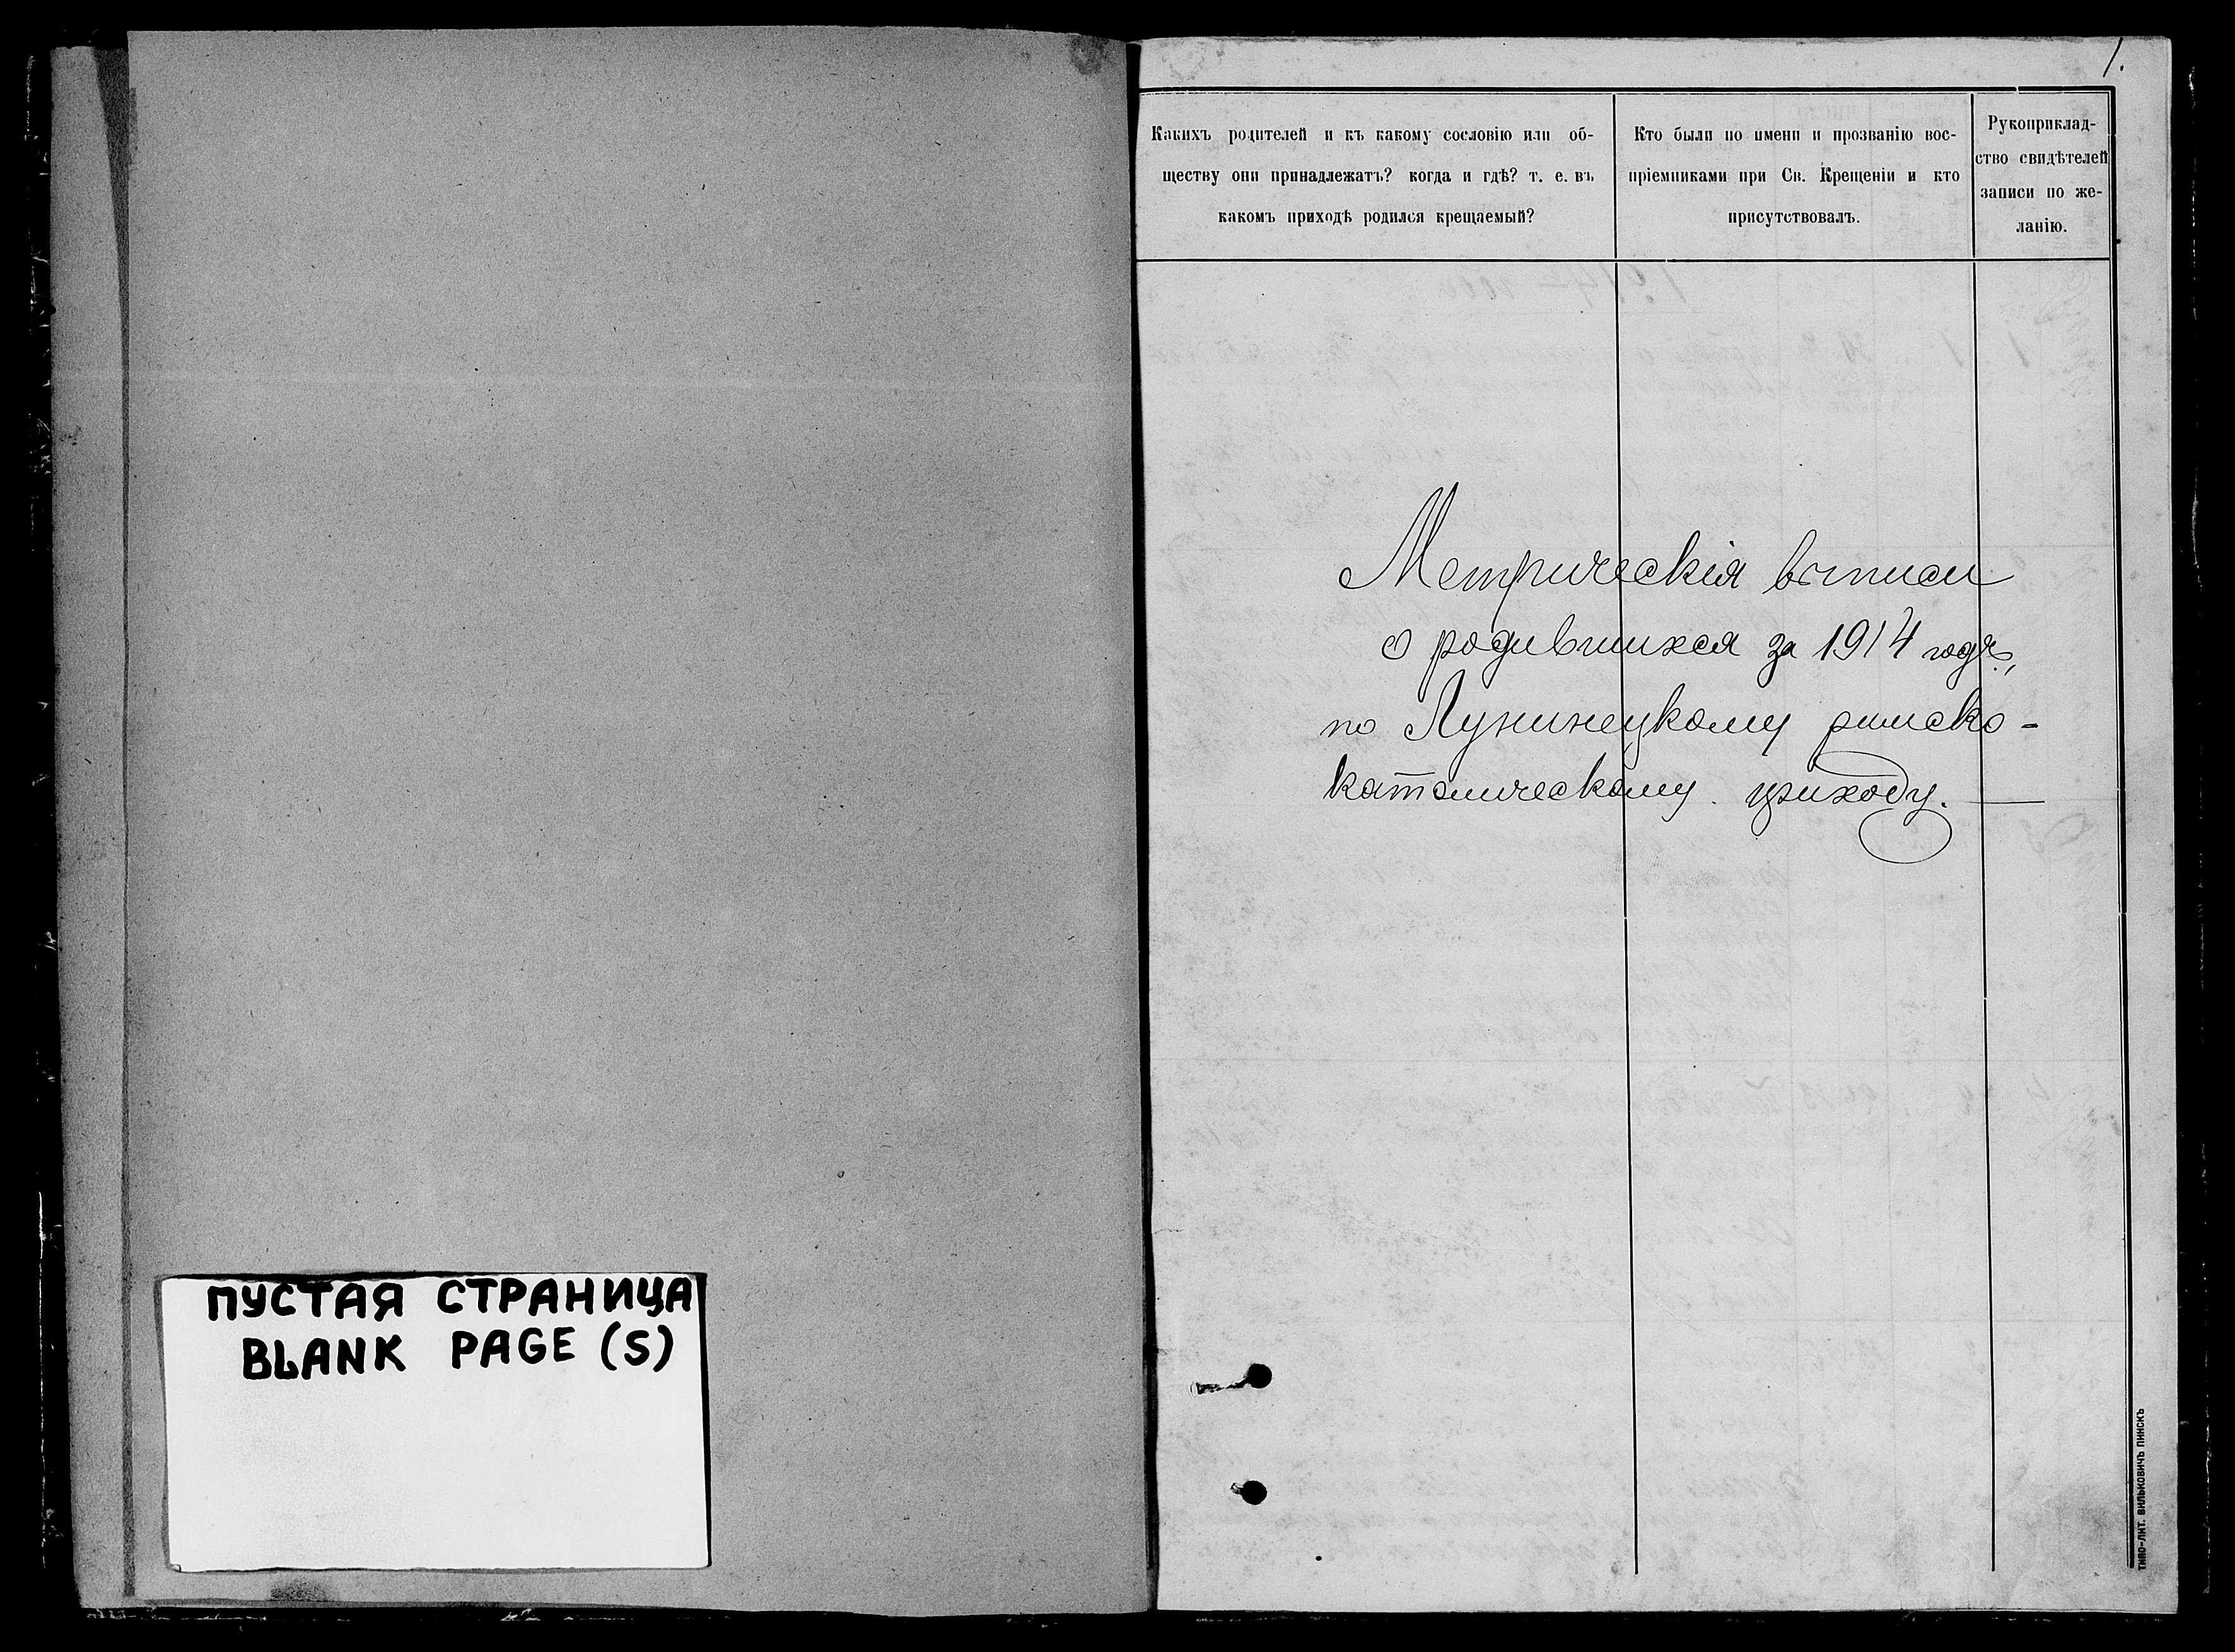 ПУСТАЯ СТРАНИЦА
BLANK PAGE (S)
1.
Какихъ родителей и къ какому сословію или об-
ществу они принадлежатъ? когда и гдѣ? т. е. въ
какомъ приходѣ родился крещаемый?
Кто были по имени и прозванію вос-
пріемниками при Св. Крещеніи и кто
присутствовалъ.
Рукоприклад-
ство свидѣтелей
записи по же-
ланію.
Метрическія выписи
о родившихся за 1914 годъ,
по Лунинецкому римско-
католическому приходу.
ТИПО-ЛИТ. ВИЛЬКОВИЧЪ ПИНСКЪ